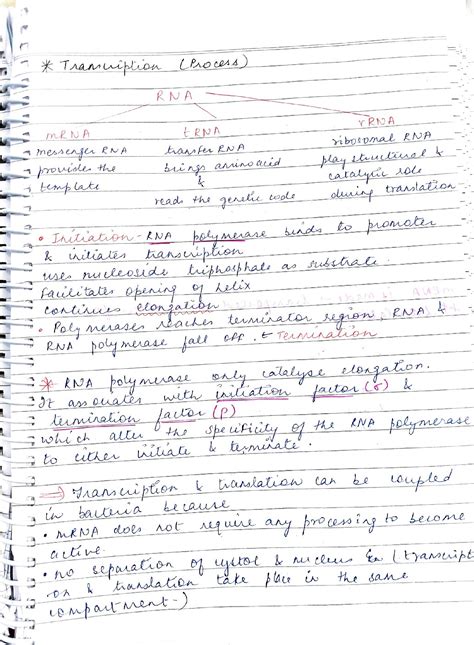 * Transcription (Process)
RNA
mRNA tRNA rRNA
messenger RNA transfer RNA ribosomal RNA
provides the brings aminoacid play structural &
template & catalytic role
reads the genetic code during translation
• Initiation - RNA polymerase binds to promoter
& initiates transcription
uses nucleoside triphosphate as substrate.
Facilitates opening of helix
continues elongation
• Polymerases reaches terminator region, RNA &
RNA polymerase fall off. Termination
* RNA polymerase only catalyse elongation.
It associates with initiation factor (σ) &
termination factor (ρ)
which alter the specificity of the RNA polymerase
to either initiate & terminate.
⇒ Transcription & translation can be coupled
in bacteria because
• mRNA does not require any processing to become
active
• no separation of cystol & nucleus (transcripti
on & translation take place in the same
compartment-)